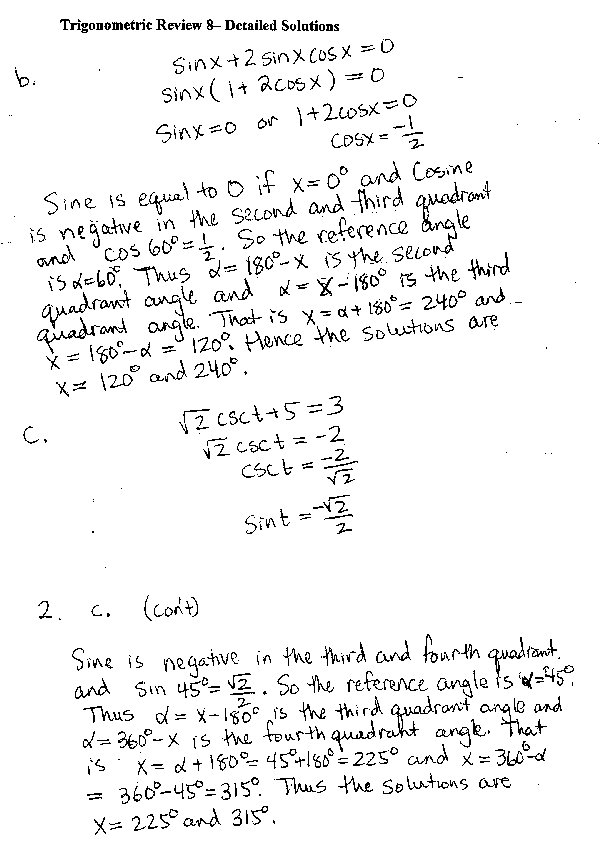 Trigonometric Review 8– Detailed Solutions
b. sinx + 2 sinx cosx = 0
sinx (1 + 2cosx) = 0
sinx = 0 or 1+2cosx = 0
cosx = -1/2
Sine is equal to 0 if x = 0° and Cosine
is negative in the second and third quadrant
and cos 60° = 1/2. So the reference angle
is α=60°. Thus α = 180°-x is the second
quadrant angle and α = x-180° is the third
quadrant angle. That is x = α + 180° = 240° and
x = 180°-α = 120°. Hence the solutions are
x = 120° and 240°.
c. √2 csct + 5 = 3
√2 csct = -2
csct = -2/√2
sint = -√2/2
2. c. (con't)
Sine is negative in the third and fourth quadrant.
and Sin 45° = √2/2. So the reference angle is α=45°.
Thus α = x-180° is the third quadrant angle and
α = 360°-x is the fourth quadrant angle. That
is x = α + 180° = 45°+180° = 225° and x = 360°-α
= 360°-45° = 315°. Thus the solutions are
x = 225° and 315°.